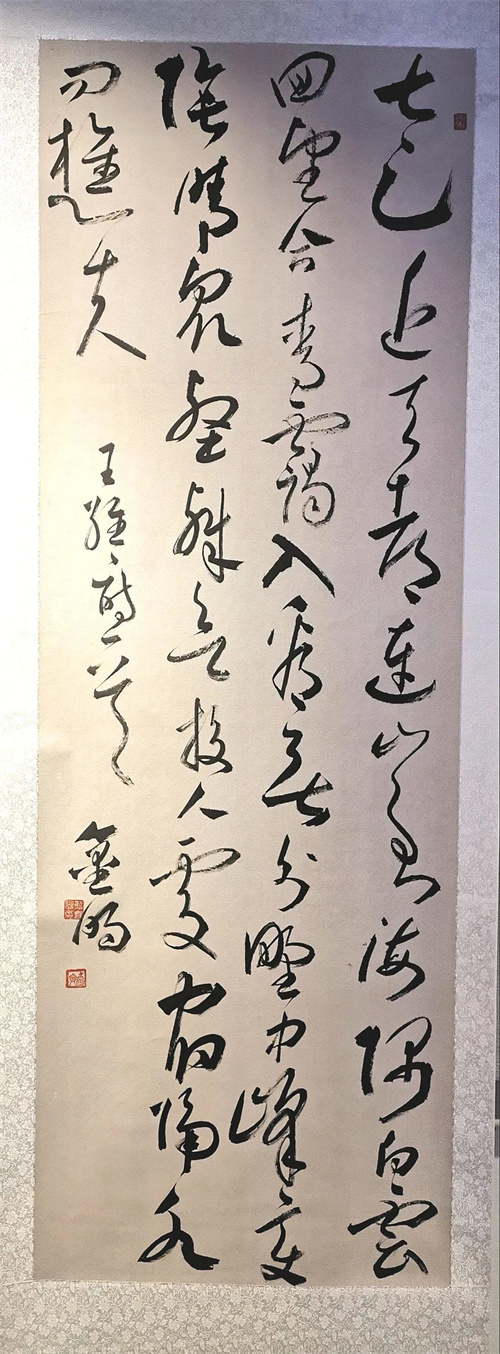 太乙近天都連山到海隅白雲
回望合青靄入看無分野中峰變
陰晴眾壑殊欲投人處宿隔水
問樵夫
王維詩一首